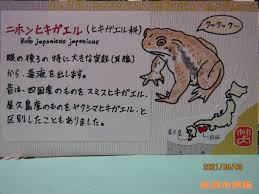 ニホンヒキガエル (ヒキガエル科)
Bufo japonicus japonicus
眼の後ろの特に大きな突起(耳腺)
から、毒液を出します。
昔は、四国産のものをスミスヒキガエル、
屋久島産のものをヤクシマヒキガエル、と
区別したこともありました。
クークークー…
屋久島
四国